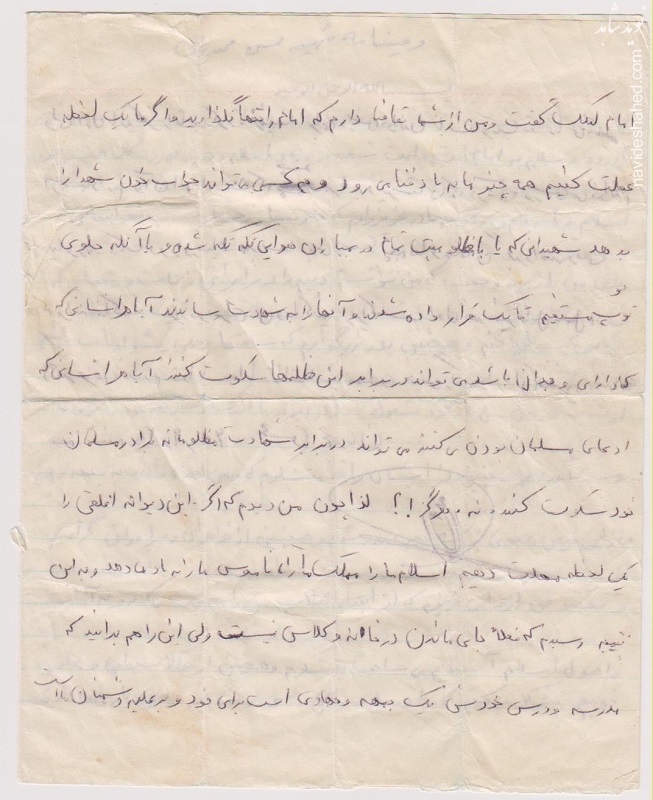 وصیتنامه شهید حسن
نوید شاهد
navideshahed.com
امام لبیک گفت ومن از شما تقاضا دارم که امام را تنها نگذارید واگر ما یک لحظه
غفلت کنیم همه چیز ما به باد فنا می رود و چه کسی می تواند جواب خون شهدا را
بدهد شهیدانی که یا با مظلومیت تمام در بمباران هوایی تکه تکه شدن و یا آنکه جلوی
توپ مستقیم تانک قرار داده شدند و آنها را به شهادت رساندند آیا هر انسانی که
دارای وجدان باشد می تواند در برابر این ظلمها سکوت کند آیا هر انسانی که
ادعای مسلمان بودن می کند می تواند در برابر شهادت مظلومانه برادر مسلمان
خود سکوت کند نه هرگز !؟ لذا چون من دیدم که اگر این دیوانه افلقی را
یک لحظه مهلت دهیم اسلام ما را مملکت ما را ناموس ما را به دهد و به این
نتیجه رسیدم که فعلا جای ماندن در خانه و کلاس نیست ولی این را هم بدانید که
مدرسه و درس خودش یک جبهه وجهادی است برای خود و بر علیه دشمنان است